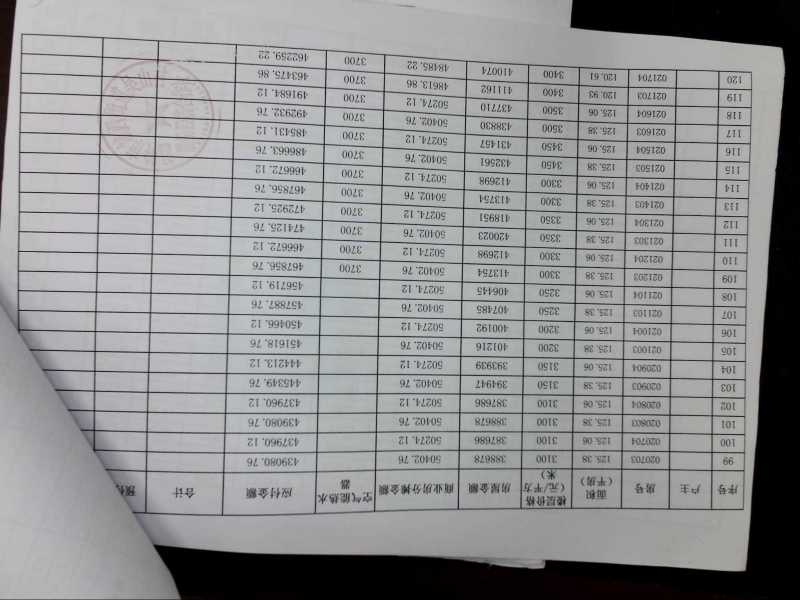 序号 户主 房号 面积（平房） 楼层价格（元/平方米） 房屋金额 商业房分摊金额 空气能热水器 应付金额 合计
99 020703 125.38 3100 388678 50402.76 439080.76
100 020704 125.06 3100 387686 50274.12 437960.12
101 020803 125.38 3100 388678 50402.76 439080.76
102 020804 125.06 3100 387686 50274.12 437960.12
103 020903 125.38 3150 394947 50402.76 445349.76
104 020904 125.06 3150 393939 50274.12 444213.12
105 021003 125.38 3200 401216 50402.76 451618.76
106 021004 125.06 3200 400192 50274.12 450466.12
107 021103 125.38 3250 407485 50402.76 457887.76
108 021104 125.06 3250 406445 50274.12 456719.12
109 021203 125.38 3300 413754 50402.76 3700 467856.76
110 021204 125.06 3300 412698 50274.12 3700 466672.12
111 021303 125.38 3350 420023 50402.76 3700 474125.76
112 021304 125.06 3350 418951 50274.12 3700 472925.12
113 021403 125.38 3300 413754 50402.76 3700 467856.76
114 021404 125.06 3300 412698 50274.12 3700 466672.12
115 021503 125.38 3450 432561 50402.76 3700 486663.76
116 021504 125.06 3450 431457 50274.12 3700 485431.12
117 021603 125.38 3500 438830 50402.76 3700 492932.76
118 021604 125.06 3500 437710 50274.12 3700 491684.12
119 021703 120.93 3400 411162 48613.86 3700 463475.86
120 021704 120.61 3400 410074 48485.22 3700 462259.22